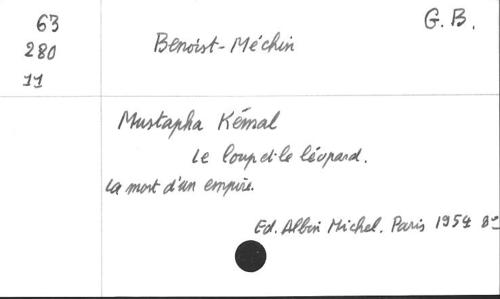 63
280
11
G. B.
Benoist-Méchin
Mustapha Kémal
Le loup et le léopard.
La mort d'un empire.
Ed. Albin Michel. Paris 1954